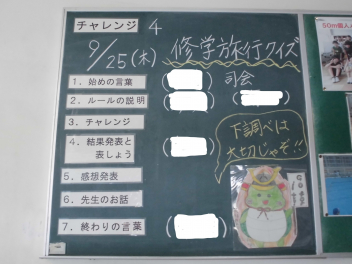 チャレンジ 4
9/25(木) 修学旅行クイズ
1. 始めの言葉 ( ) 司会
2. ルールの説明 ( ) ( )
3. チャレンジ
4. 結果発表と
表しょう ( )
5. 感想発表
6. 先生のお話
7. 終わりの言葉 ( )
下調べは
大切じゃぞ!!
50m個人